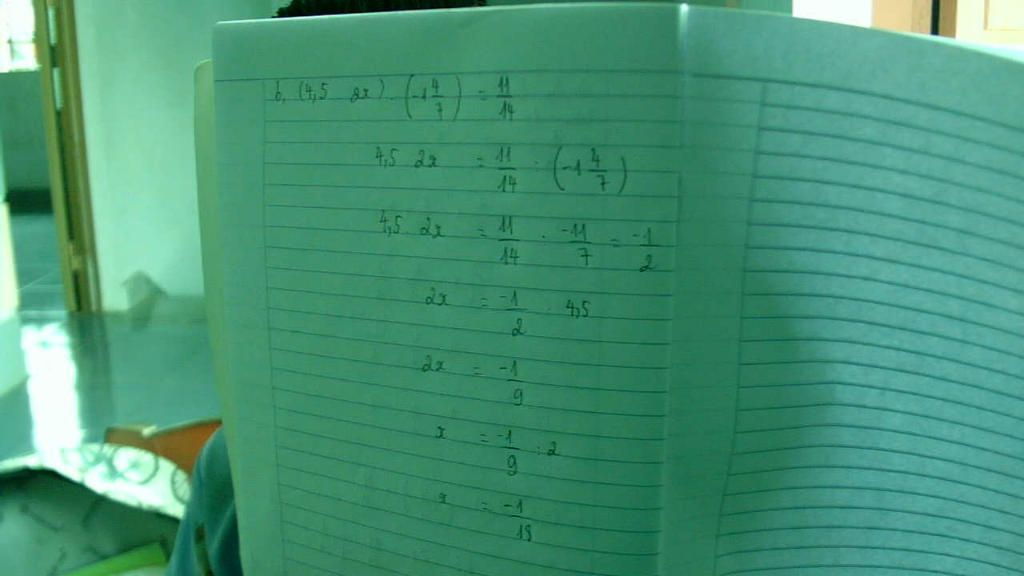 b, (4,5 2x) . (-1 4/7) = 11/14
4,5 2x = 11/14 : (-1 4/7)
4,5 . 2x = 11/14 : -11/7 = -1/2
2x = -1/2 : 4,5
2x = -1/9
x = -1/9 : 2
x = -1/18